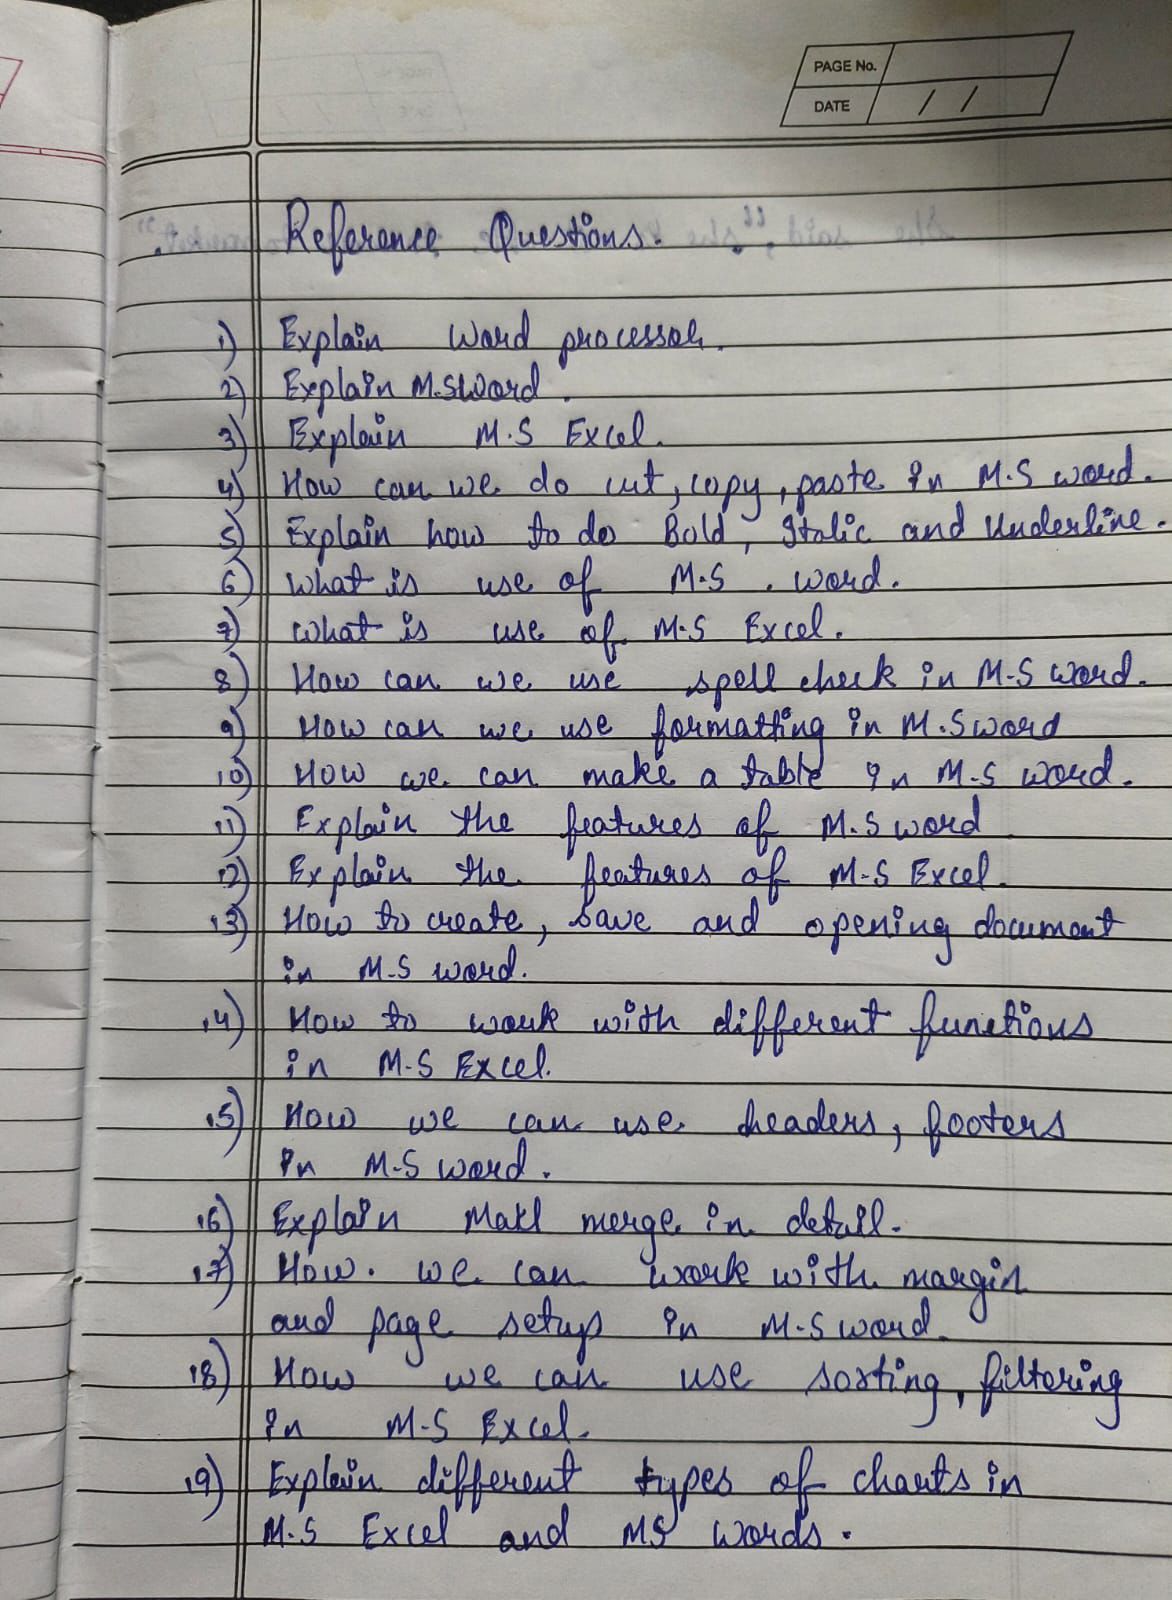 PAGE No.
DATE / /
Reference Questions.
1) Explain Word processor.
2) Explain M.SWord.
3) Explain M.S Excel.
4) How can we do cut, copy, paste in M.S word.
5) Explain how to do Bold, Italic and Underline.
6) What is use of M.S. word.
7) What is use of M.S Excel.
8) How can we use spell check in M.S word.
9) How can we use formatting in M.S word
10) How we can make a table in M.S word.
11) Explain the features of M.S word
12) Explain the features of M.S Excel.
13) How to create, save and opening document
in M.S word.
14) How to work with different functions
in M.S Excel.
15) How we can use headers, footers
in M.S word.
16) Explain Mail merge in detail.
17) How. we can work with margin
and page setup in M.S word.
18) How we can use sorting, filtering
in M.S Excel.
19) Explain different types of charts in
M.S Excel and MS words.